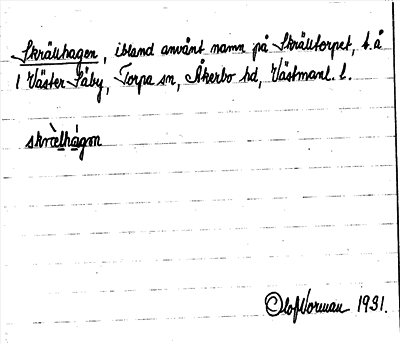 Skrällhagen, ibland använt namn på Skrälltorpet, t. å
1 Väster-Såby, Torpa sn, Åkerbo hd, Västmanl. l.
skræ̀lhágen
Olof Norman 1931.